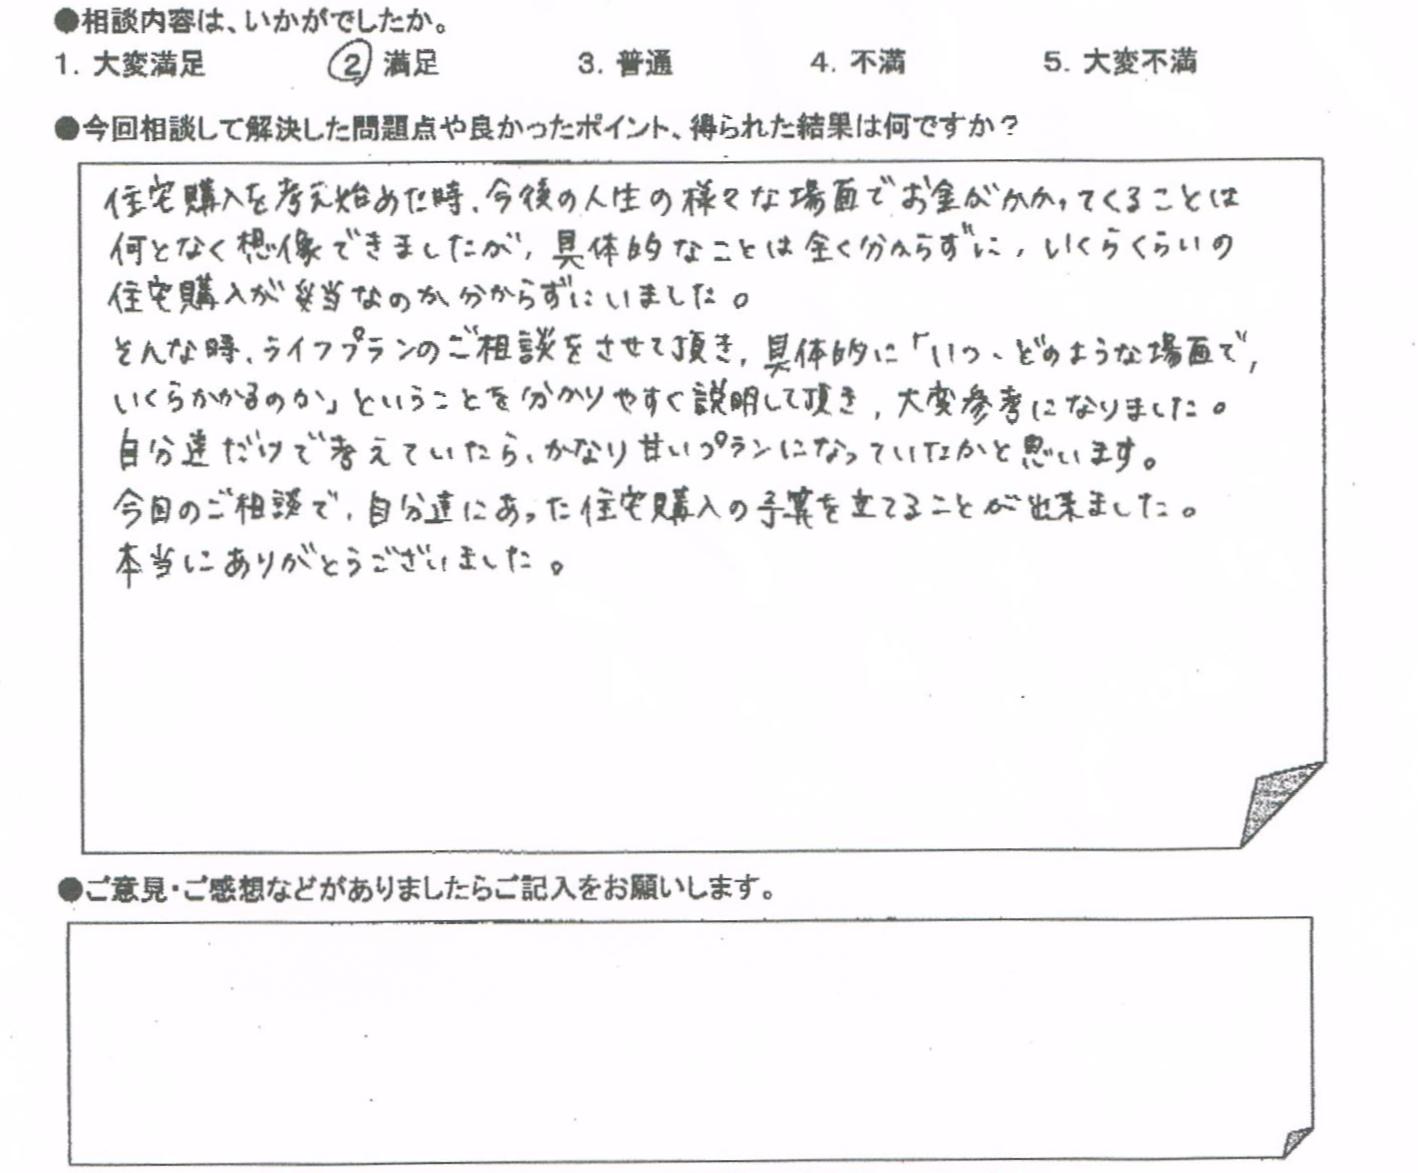 ●相談内容は、いかがでしたか。
1. 大変満足 ② 満足 3. 普通 4. 不満 5. 大変不満
●今回相談して解決した問題点や良かったポイント、得られた結果は何ですか？
住宅購入を考え始めた時、今後の人生の様々な場面でお金がかかってくることは
何となく想像できましたが、具体的なことは全く分からずに、いくらくらいの
住宅購入が妥当なのか分からずにいました。
そんな時、ライフプランのご相談をさせて頂き、具体的に「いつ、どのような場面で、
いくらかかるのか」ということを分かりやすく説明して頂き、大変参考になりました。
自分達だけで考えていたら、かなり甘いプランになっていたかと思います。
今回のご相談で、自分達にあった住宅購入の予算を立てることが出来ました。
本当にありがとうございました。
●ご意見・ご感想などがありましたらご記入をお願いします。